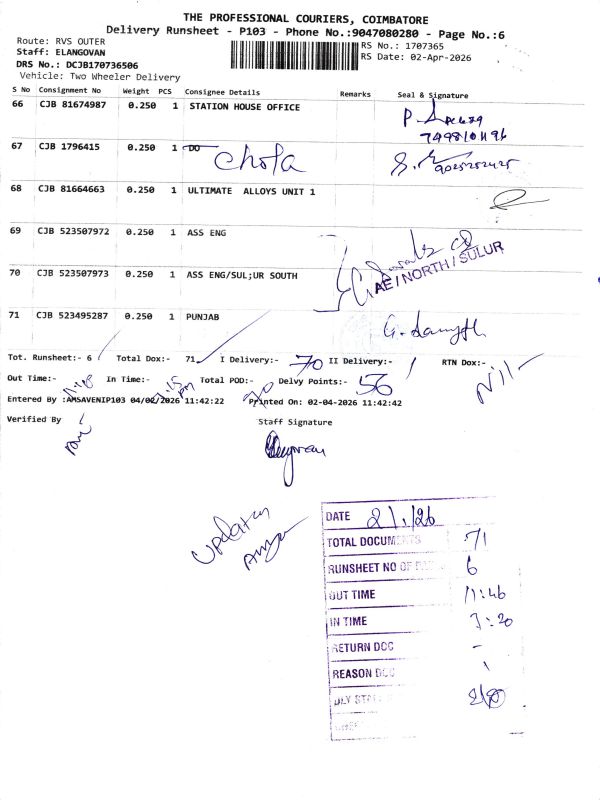 THE PROFESSIONAL COURIERS, COIMBATORE
Delivery Runsheet - P103 - Phone No.:9047080280 - Page No.:6
Route: RVS OUTER
RS No.: 1707365
Staff: ELANGOVAN
RS Date: 02-Apr-2026
DRS No.: DCJB170736506
Vehicle: Two Wheeler Delivery
S No Consignment No Weight PCS Consignee Details Remarks Seal & Signature
66 CJB 81674987 0.250 1 STATION HOUSE OFFICE
67 CJB 1796415 0.250 1 DO chola
68 CJB 81664663 0.250 1 ULTIMATE ALLOYS UNIT 1
69 CJB 523507972 0.250 1 ASS ENG
AE / NORTH / SULUR
70 CJB 523507973 0.250 1 ASS ENG/SUL;UR SOUTH
71 CJB 523495287 0.250 1 PUNJAB
Tot. Runsheet:- 6 Total Dox:- 71 I Delivery:- 70 II Delivery:- RTN Dox:- Nil-
Out Time:- In Time:- Total POD:- 70 Delvy Points:- 56
Entered By :AMSAVENIP103 04/02/2026 11:42:22 Printed On: 02-04-2026 11:42:42
Verified By
Staff Signature
DATE
TOTAL DOCUMENTS 71
RUNSHEET NO OF 6
OUT TIME 11:46
IN TIME 3:20
RETURN DOC -
REASON DOC